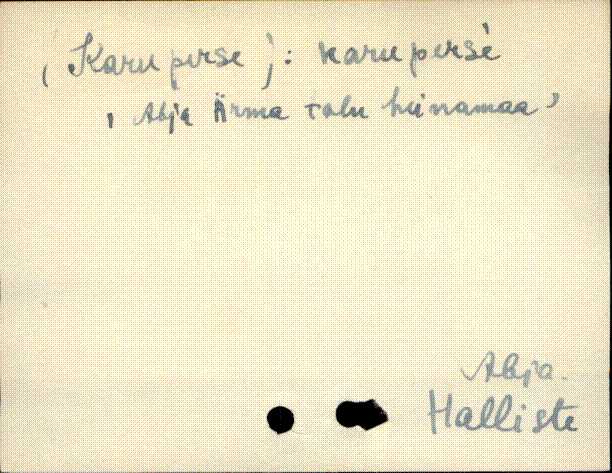 (Karu perse): karu persè
, Abja Ärma talu heinamaa'
Abja.
Halliste